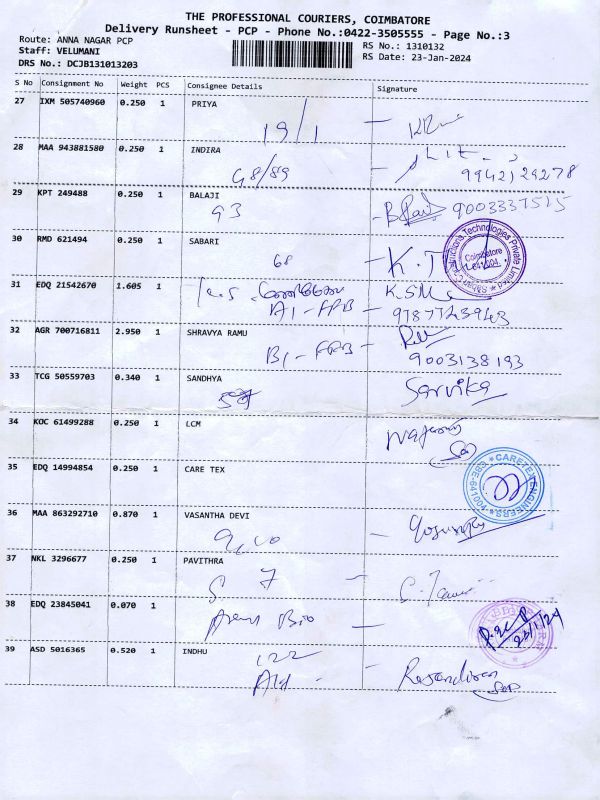 THE PROFESSIONAL COURIERS, COIMBATORE
Delivery Runsheet - PCP - Phone No.:0422-3505555 - Page No.:3
Route: ANNA NAGAR PCP
RS No.: 1310132
Staff: VELUMANI
RS Date: 23-Jan-2024
DRS No.: DCJB131013203
S No Consignment No Weight PCS Consignee Details Signature
27 IXM 505740960 0.250 1 PRIYA
19/1 -
28 MAA 943881580 0.250 1 INDIRA
G8/89 9942129278
29 KPT 249488 0.250 1 BALAJI
G3 9003337515
30 RMD 621494 0.250 1 SABARI
Coimbatore
31 EDQ 21542670 1.605 1
A1 - FFB - 9787743943
32 AGR 700716811 2.950 1 SHRAVYA RAMU
B1 - FFB - 9003138193
33 TCG 50559703 0.340 1 SANDHYA
Sarvika
34 KOC 61499288 0.250 1 LCM
35 EDQ 14994854 0.250 1 CARE TEX
CARETEX ENGINEERS
36 MAA 863292710 0.870 1 VASANTHA DEVI
37 NKL 3296677 0.250 1 PAVITHRA
S 7 -
38 EDQ 23845041 0.070 1
Bio
23/1/24
39 ASD 5016365 0.520 1 INDHU
122 -